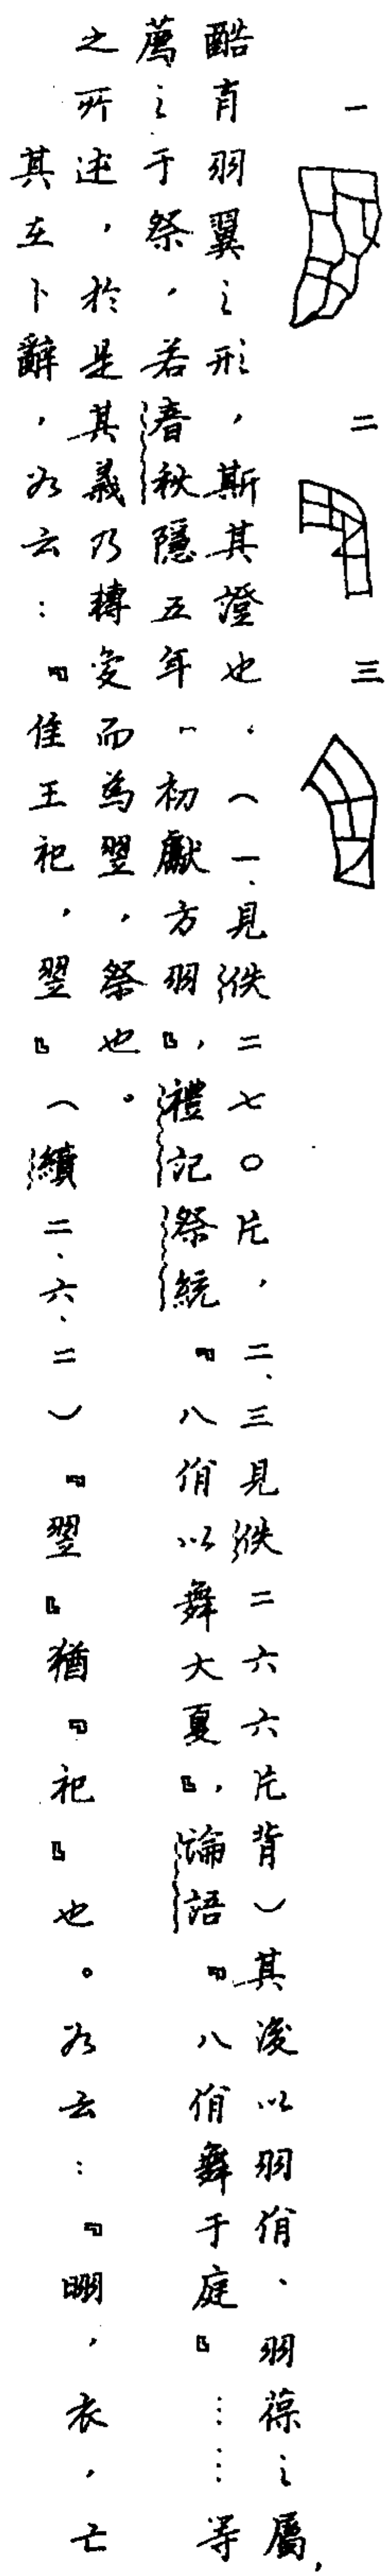 一
二
三
酷肖羽翼之形，斯其證也．（一、見佚二七〇片，二、三見佚二六六片背）其後以羽佾、羽葆之屬，
薦之于祭，若春秋隱五年『初獻方羽』，禮記祭統『八佾以舞大夏』，論語『八佾舞于庭』……等
之所述，於是其義乃轉變而為翌，祭也。
其在卜辭，如云：『隹王祀，翌』（續二、六、二）『翌』猶『祀』也。如云：『䎞，衣，亡